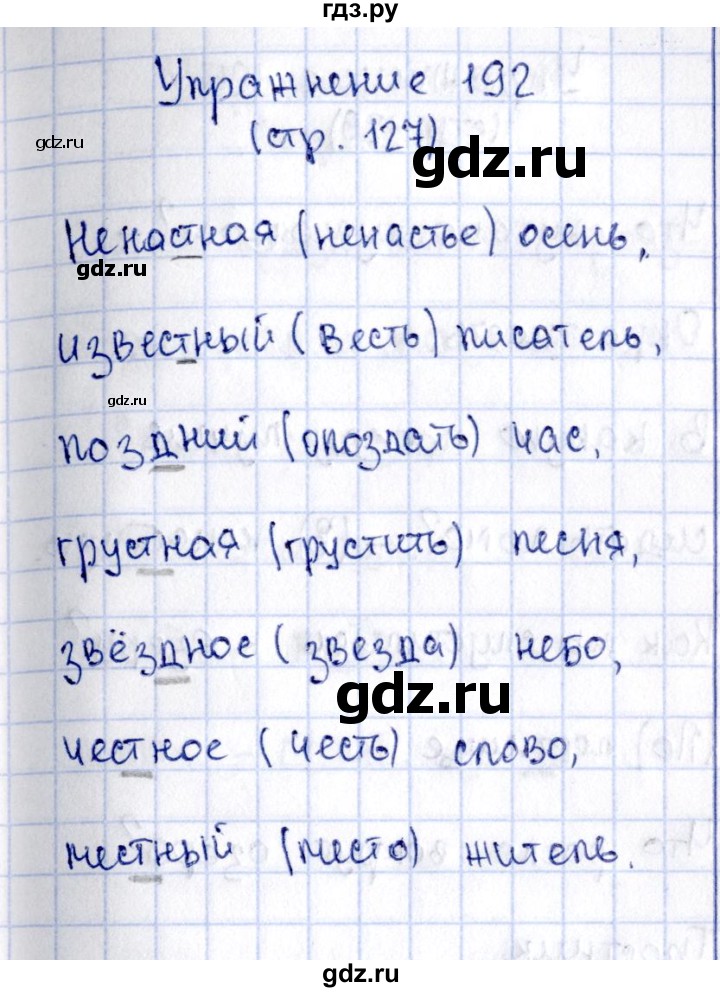 гдз.ру
Упражнение 192
gdz.ru
(стр. 127)
gdz.ru
Ненастная (ненастье) осень,
gdz.ru
известный (весть) писатель,
gdz.ru
поздний (опоздать) час,
грустная (грустить) песня,
звёздное (звезда) небо,
gdz.ru
честное (честь) слово,
местный (место) житель.
gdz.ru